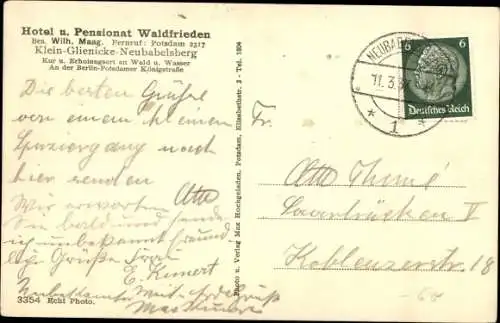 Hotel u. Pensionat Waldfrieden
Bes. Wilh. Maag. Fernruf: Potsdam 2317
Klein-Glienicke-Neubabelsberg
Kur u. Erholungsort an Wald u. Wasser
An der Berlin-Potsdamer Königstraße
Die besten Grüße
von einem kleinen
Spaziergang nach
hier senden
Otto
Wir erwarten
Sie bald und sende
ich unbekannt freund-
Grüße Frau
E. Kunert
Mit
Gruß
3354 Echt Photo.
Photo u. Verlag Max Hochgeladen, Potsdam, Elisabethstr. 3 - Tel. 1804
NEUBABE
11.3.3
* 1 *
6 6
Deutsches Reich
Fr.
Otto
Saarbrücken V
Koblenzerstr. 18